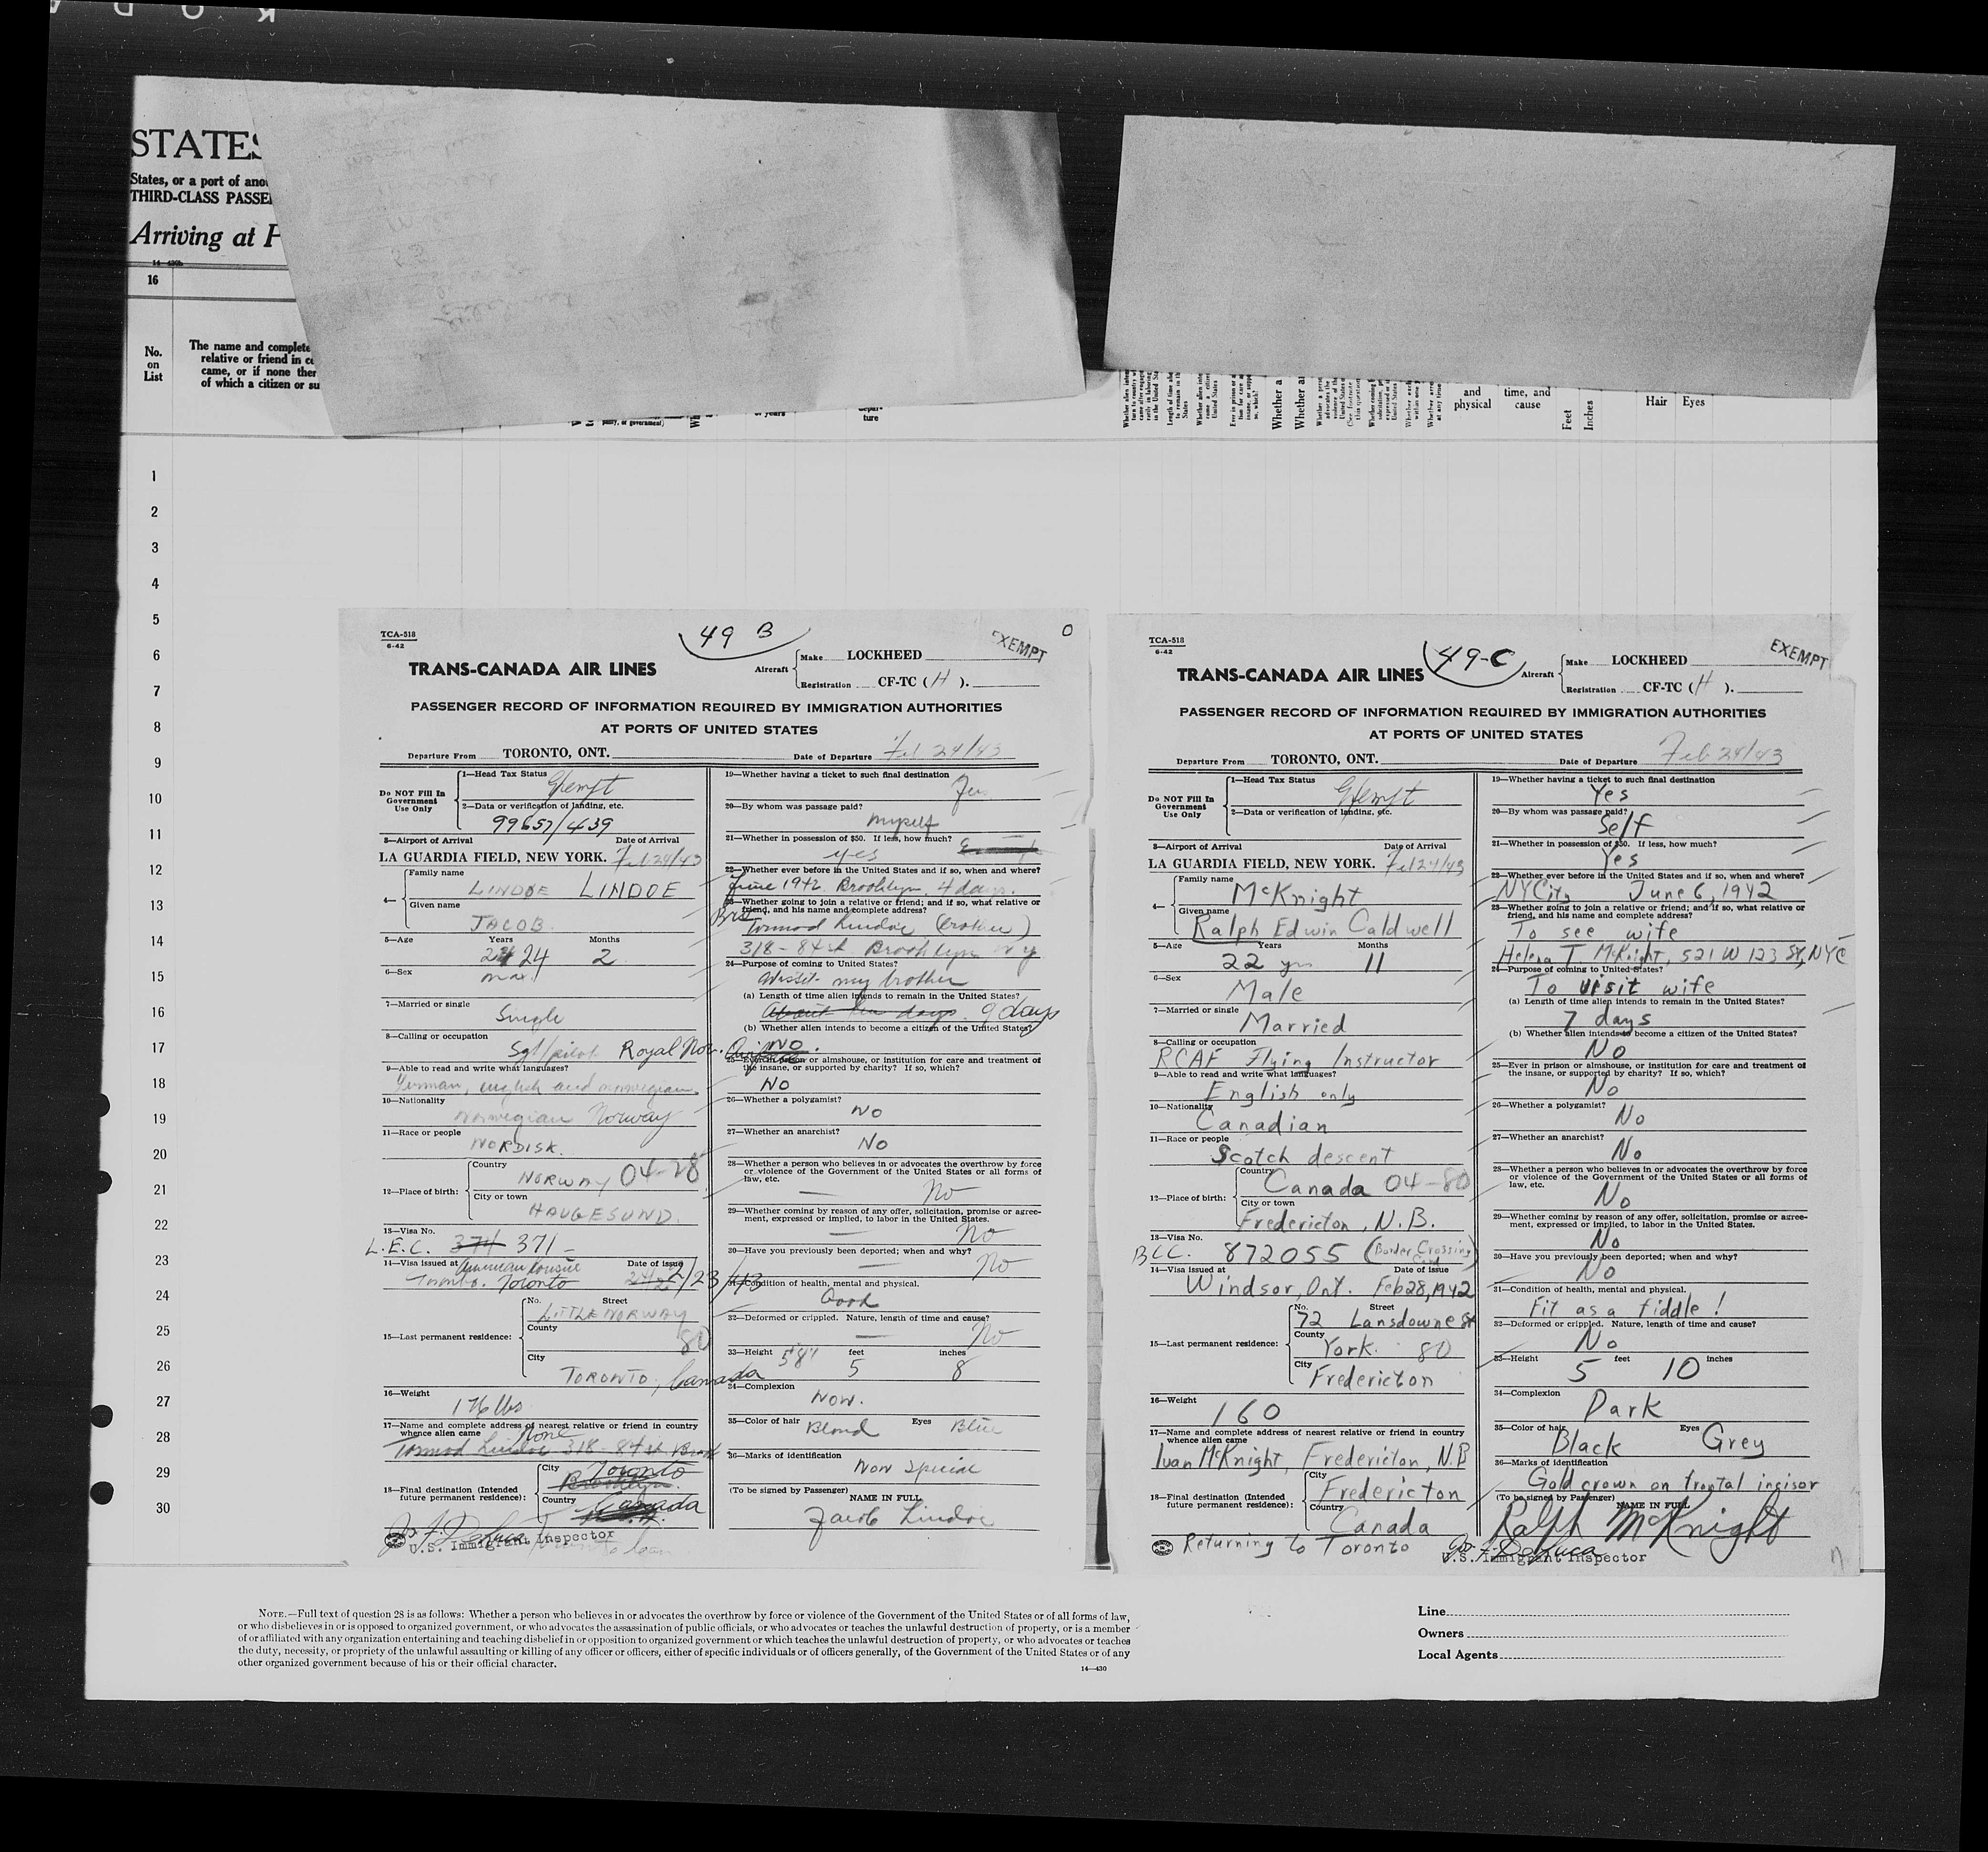 K O D A
STATES
States, or a port of ano
THIRD-CLASS PASSE
Arriving at P
16
No.
on
List
The name and complete
relative or friend in c
came, or if none ther
of which a citizen or su
party, or government)
of years
depar-
ture
and
physical
time, and
cause
Feet
Inches
Hair
Eyes
1
2
3
4
5
6
7
8
9
10
11
12
13
14
15
16
17
18
19
20
21
22
23
24
25
26
27
28
29
30
TCA-518
6-42
49 B
EXEMPT
O
TRANS-CANADA AIR LINES
Aircraft
Make LOCKHEED
Registration CF-TC ( H ).
PASSENGER RECORD OF INFORMATION REQUIRED BY IMMIGRATION AUTHORITIES
AT PORTS OF UNITED STATES
Departure From TORONTO, ONT.
Date of Departure Feb 24/43
Do NOT Fill In Government Use Only
1—Head Tax Status Exempt
2—Data or verification of landing, etc.
99657/439
3—Airport of Arrival Date of Arrival
LA GUARDIA FIELD, NEW YORK. Feb 24/43
4—
Family name
LINDOE LINDOE
Given name
JACOB
5—Age Years Months
24 24 2
6—Sex
7—Married or single
Single
8—Calling or occupation
Sgt/pilot Royal Nor.
9—Able to read and write what languages?
German, english and norwegian
10—Nationality
norwegian Norway
11—Race or people
NORDISK.
12—Place of birth:
Country
NORWAY 04-28
City or town
HAUGESUND.
13—Visa No.
L.E.C. 374 371
14—Visa issued at American Consul Date of issue
Toronto. Toronto 2/23/43
15—Last permanent residence:
No. Street
LITTLE NORWAY
County
80
City
TORONTO, Canada
16—Weight
176 lbs
17—Name and complete address of nearest relative or friend in country
whence alien came None
Tormod Lindoe 318-84 st. Brook
18—Final destination (Intended
future permanent residence):
City Toronto
Brooklyn.
Country Canada
U.S. Immigrant Inspector
19—Whether having a ticket to such final destination
Yes
20—By whom was passage paid?
myself
21—Whether in possession of $50. If less, how much?
yes
22—Whether ever before in the United States and if so, when and where?
June 1942 Brooklyn. 4 days.
23—Whether going to join a relative or friend; and if so, what relative or
friend, and his name and complete address?
Bro. Tormod Lindoe (brother)
318-84 st Brooklyn N Y
24—Purpose of coming to United States?
Visit my brother
(a) Length of time alien intends to remain in the United States?
About ten days. 9 days
(b) Whether alien intends to become a citizen of the United States?
NO.
25—Ever in prison or almshouse, or institution for care and treatment of
the insane, or supported by charity? If so, which?
NO
26—Whether a polygamist?
NO
27—Whether an anarchist?
NO
28—Whether a person who believes in or advocates the overthrow by force
or violence of the Government of the United States or all forms of
law, etc.
No
29—Whether coming by reason of any offer, solicitation, promise or agree-
ment, expressed or implied, to labor in the United States.
No
30—Have you previously been deported; when and why?
No
31—Condition of health, mental and physical.
Good
32—Deformed or crippled. Nature, length of time and cause?
No
33—Height feet inches
5'8" 5 8
34—Complexion
Nor.
35—Color of hair Eyes
Blond Blue
36—Marks of identification
Non Special
(To be signed by Passenger)
NAME IN FULL
Jacob Lindoe
TCA-518
6-42
49-C
EXEMPT
TRANS-CANADA AIR LINES
Aircraft
Make LOCKHEED
Registration CF-TC ( H ).
PASSENGER RECORD OF INFORMATION REQUIRED BY IMMIGRATION AUTHORITIES
AT PORTS OF UNITED STATES
Departure From TORONTO, ONT.
Date of Departure Feb 24/43
Do NOT Fill In Government Use Only
1—Head Tax Status Exempt
2—Data or verification of landing, etc.
3—Airport of Arrival Date of Arrival
LA GUARDIA FIELD, NEW YORK. Feb 24/43
4—
Family name
McKnight
Given name
Ralph Edwin Caldwell
5—Age Years Months
22 yrs 11
6—Sex
Male
7—Married or single
Married
8—Calling or occupation
RCAF Flying Instructor
9—Able to read and write what languages?
English only
10—Nationality
Canadian
11—Race or people
Scotch descent
12—Place of birth:
Country
Canada 04-80
City or town
Fredericton, N.B.
13—Visa No.
BCC. 872055 (Border Crossing Card)
14—Visa issued at Date of issue
Windsor, Ont. Feb 28, 1942
15—Last permanent residence:
No. Street
72 Lansdowne St
County
York. 80
City
Fredericton
16—Weight
160
17—Name and complete address of nearest relative or friend in country
whence alien came
Ivan McKnight, Fredericton, N.B
18—Final destination (Intended
future permanent residence):
City
Fredericton
Country
Canada
Returning to Toronto
U.S. Immigrant Inspector
19—Whether having a ticket to such final destination
Yes
20—By whom was passage paid?
Self
21—Whether in possession of $50. If less, how much?
Yes
22—Whether ever before in the United States and if so, when and where?
NYCity June 6, 1942
23—Whether going to join a relative or friend; and if so, what relative or
friend, and his name and complete address?
To see wife
Helena T McKnight, 521 W 123 St, NYC
24—Purpose of coming to United States?
To visit wife
(a) Length of time alien intends to remain in the United States?
7 days
(b) Whether alien intends to become a citizen of the United States?
No
25—Ever in prison or almshouse, or institution for care and treatment of
the insane, or supported by charity? If so, which?
No
26—Whether a polygamist?
No
27—Whether an anarchist?
No
28—Whether a person who believes in or advocates the overthrow by force
or violence of the Government of the United States or all forms of
law, etc.
No
29—Whether coming by reason of any offer, solicitation, promise or agree-
ment, expressed or implied, to labor in the United States.
No
30—Have you previously been deported; when and why?
No
31—Condition of health, mental and physical.
Fit as a fiddle!
32—Deformed or crippled. Nature, length of time and cause?
No
33—Height feet inches
5 10
34—Complexion
Dark
35—Color of hair Eyes
Black Grey
36—Marks of identification
Gold crown on frontal incisor
(To be signed by Passenger)
NAME IN FULL
Ralph McKnight
NOTE.—Full text of question 28 is as follows: Whether a person who believes in or advocates the overthrow by force or violence of the Government of the United States or of all forms of law,
or who disbelieves in or is opposed to organized government, or who advocates the assassination of public officials, or who advocates or teaches the unlawful destruction of property, or is a member
of or affiliated with any organization entertaining and teaching disbelief in or opposition to organized government or which teaches the unlawful destruction of property, or who advocates or teaches
the duty, necessity, or propriety of the unlawful assaulting or killing of any officer or officers, either of specific individuals or of officers generally, of the Government of the United States or of any
other organized government because of his or their official character.
14—430
Line
Owners
Local Agents